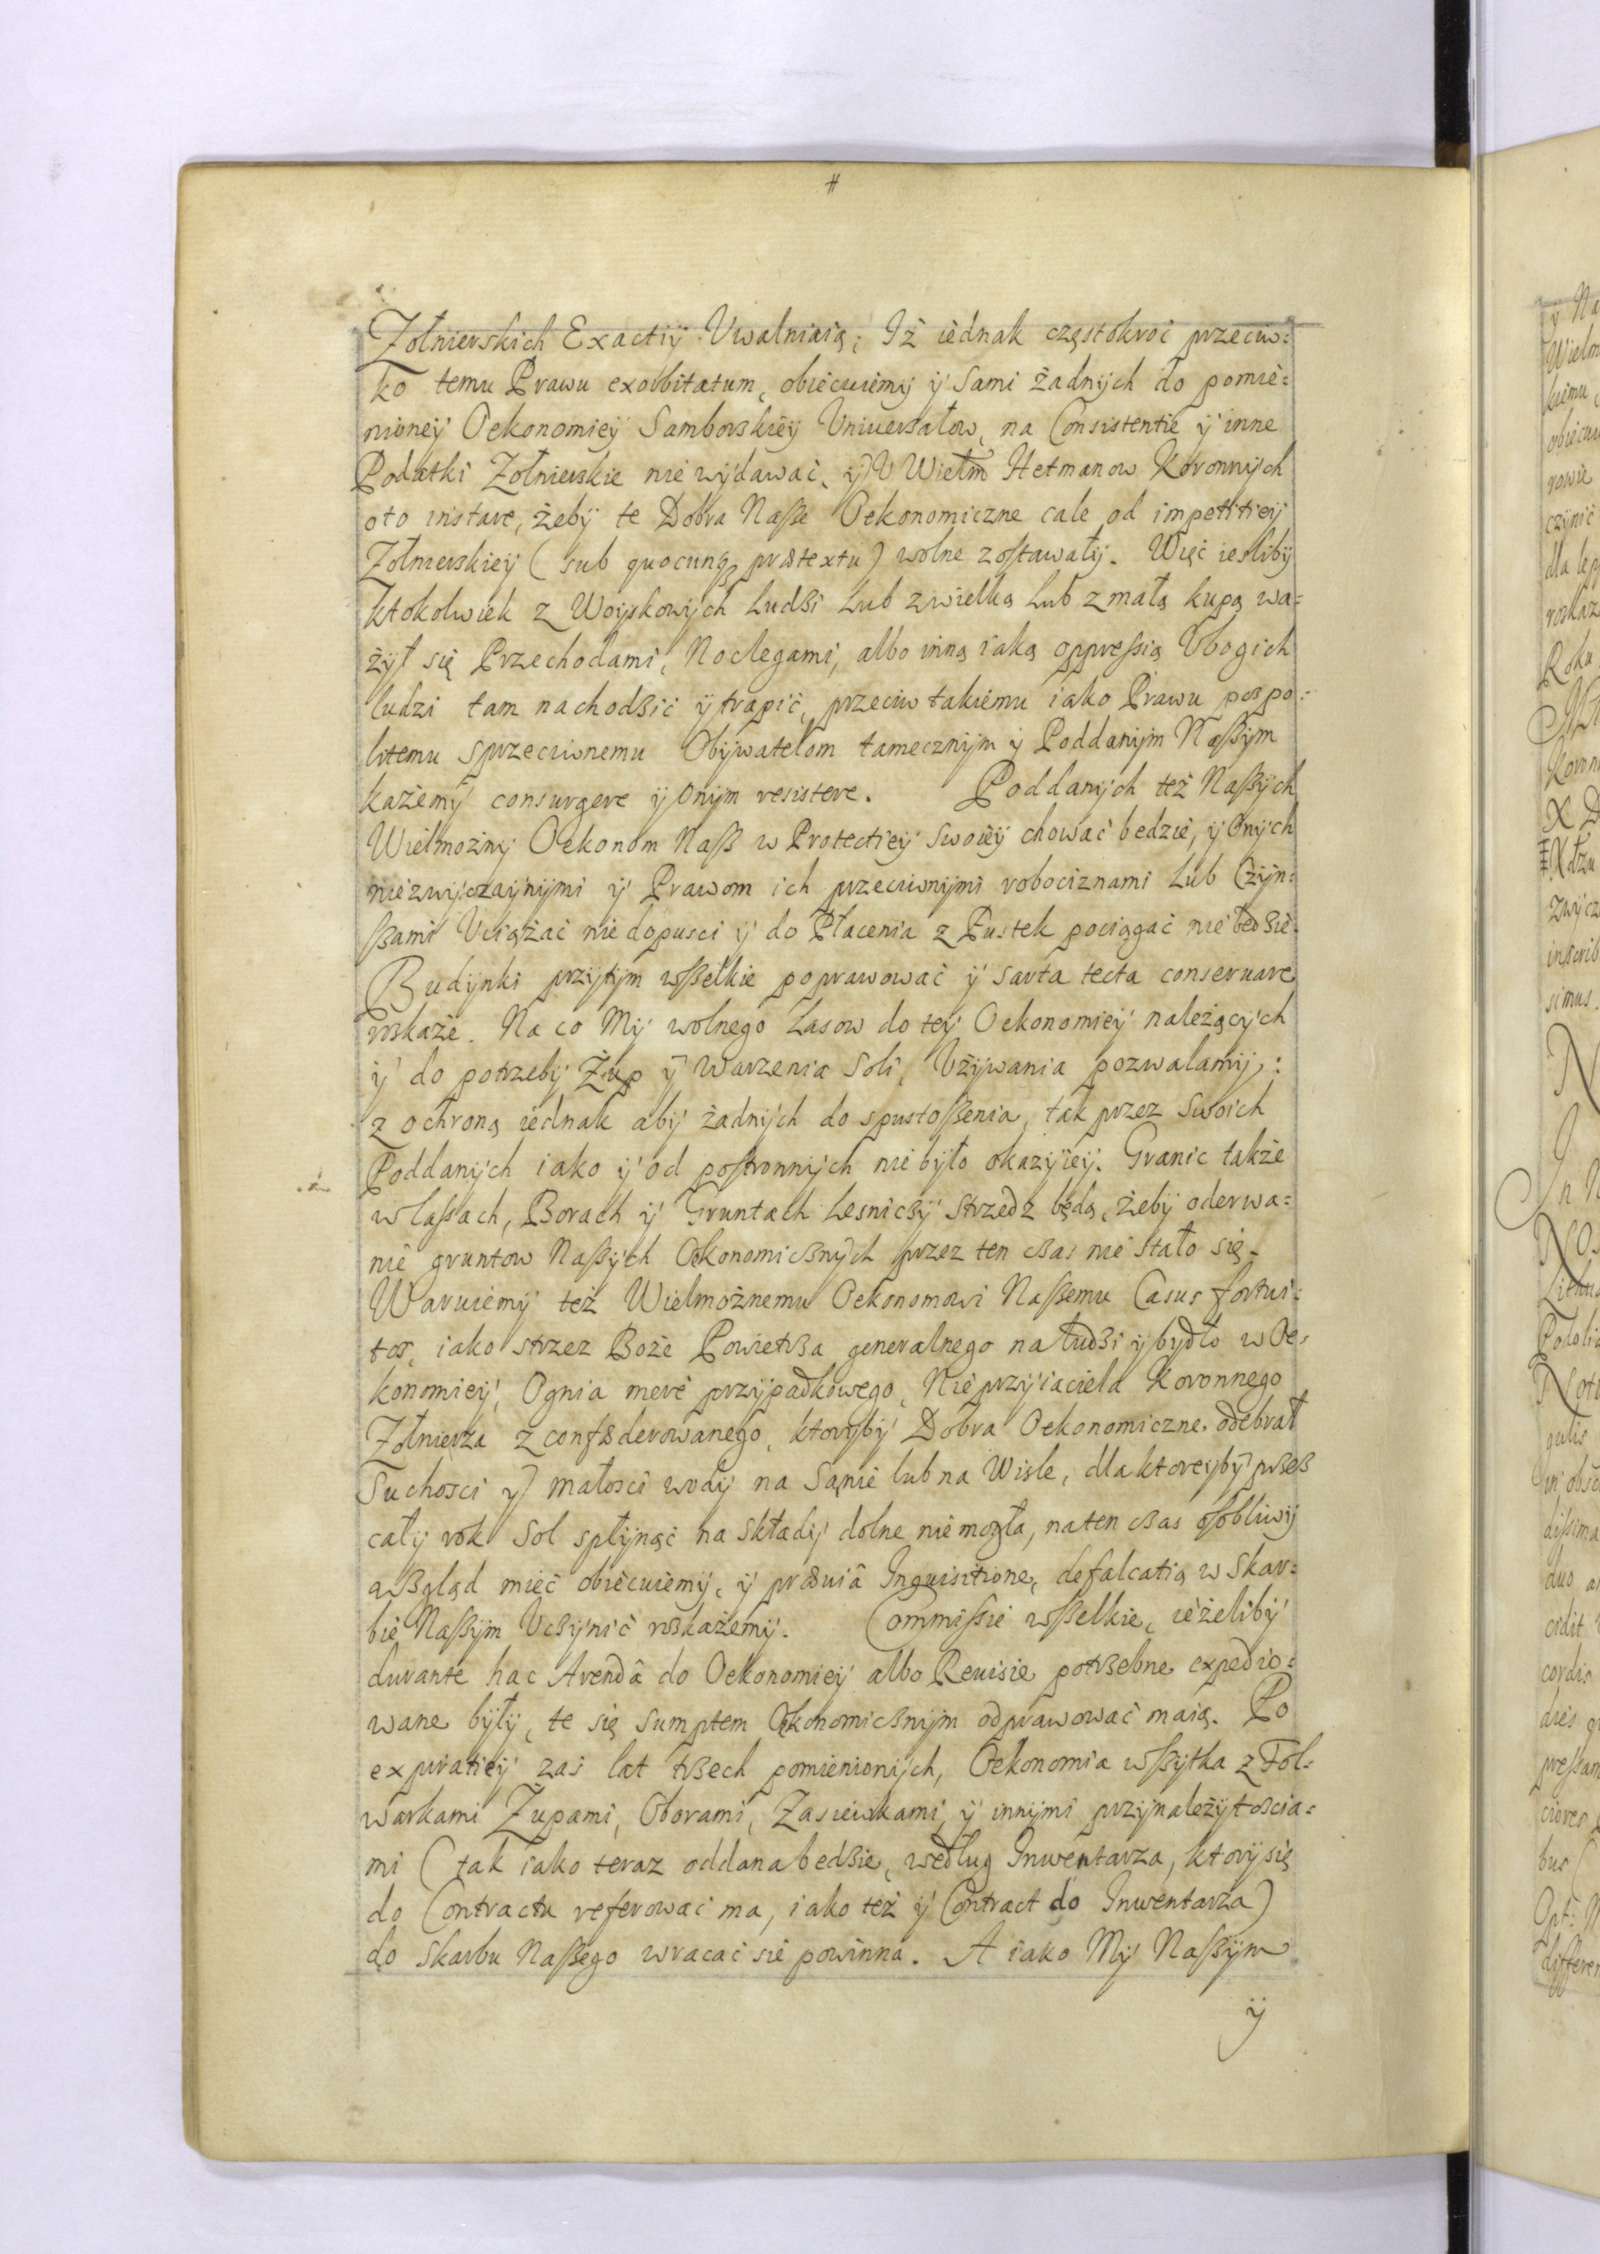 #
Zołnierskich Exactiÿ Vwalniaią; Iż iednak częstokroć przeciw=
ko temu Prawu exorbitatum, obiecuiemÿ ÿ Sami żadnÿch do pomie=
nioneÿ Oekonomieÿ Samborskieÿ Vniuersałow, na Consistentie ÿ inne
Podatki Zołnierskie nie wÿdawać, ÿ V Wielm Hetmanow Koronnÿch
oto instare, żebÿ te Dobra Nasze Oekonomiczne cale od impetitieÿ
Zołnierskieÿ (sub quocunqз prætextu) wolne zostawałÿ. Więc iesliby
ktokolwiek z Woÿskowÿch Ludzi Lub z wielką Lub z małą kupą wa=
żÿł się Przechodami, Noclegami, albo inną iaką oppressią Vbogich
ludzi tam nachodzić ÿ trapić, przeciw takiemu iako Prawu pospo=
litemu sprzeciwnemu Obÿwatelom tamecznÿm ÿ Poddanÿm Naszÿm
każemÿ consurgere ÿ onÿm resistere. Poddanÿch też Naszÿch
Wielmożnÿ Oekonom Nasz w Protectieÿ swoieÿ chować bedzie, ÿ onÿch
niezwÿczaÿnÿmi ÿ Prawom ich przeciwnÿmi robociznami Lub Czÿn=
szami Vciążać nie dopusci ÿ do Płacenia z Pustek pociągać nie bedzie.
Budÿnki przÿtÿm wszelkie poprawować ÿ sarta tecta conseruare
roskaże. Na co Mÿ wolnego Lasow do teÿ Oekonomieÿ należącÿch
ÿ do potrzebÿ Żup ÿ Warzenia Soli, Vżÿwania pozwalamÿ:
z ochroną iednak abÿ żadnÿch do spustoszenia, tak przez Swoich
Poddanÿch iako ÿ od postronnÿch nie bÿło okazÿieÿ. Granic także
w lassach, Borach ÿ Gruntach Lesniczÿ strzedz będą, żebÿ oderwa=
nie gruntow Naszÿch Oekonomicznÿch przez ten czas nie Stało się.
Waruiemÿ też Wielmożnemu Oekonomowi Naszemu Casus fortui=
tos, iako strzez Boże Powietrza generalnego na ludzi ÿ bÿdło w Oe=
konomieÿ, Ognia mere przÿpadkowego, Nieprzÿiaciela Koronnego
Zołnierza zconfæderowanego, ktorÿbÿ Dobra Oekonomiczne odebrał
Suchosci ÿ małosci wodÿ na Sanie lub na Wisle, dla ktoreÿbÿ przez
całÿ rok Sol spłÿnąć na Składÿ dolne nie mogła, na ten czas osobliwÿ
wzgląd mieć obiecuiemÿ, ÿ præuiâ Inquisitione, defalcatią w Skar=
bie Naszÿm Vczÿnić roskażemÿ. Commissie wszelkie, ieżelibÿ
durante hac Arendâ do Oekonomieÿ albo Reuisie potrzebne expedio=
wane bÿłÿ, te się sumptem Oekonomicznÿm odprawować maią. Po
expiratieÿ zas lat trzech pomienionÿch, Oekonomia wszÿtka z Fol=
warkami Żupami, Oborami, Zasiewkami, ÿ innÿmi przÿnależÿtoscia=
mi (tak iako teraz oddana bedzie, według Inwentarza, ktorÿ się
do Contractu referować ma, iako też ÿ Contract do Inwentarza)
do skarbu Naszego wracać się powinna. A iako Mÿ Naszÿm
ÿ